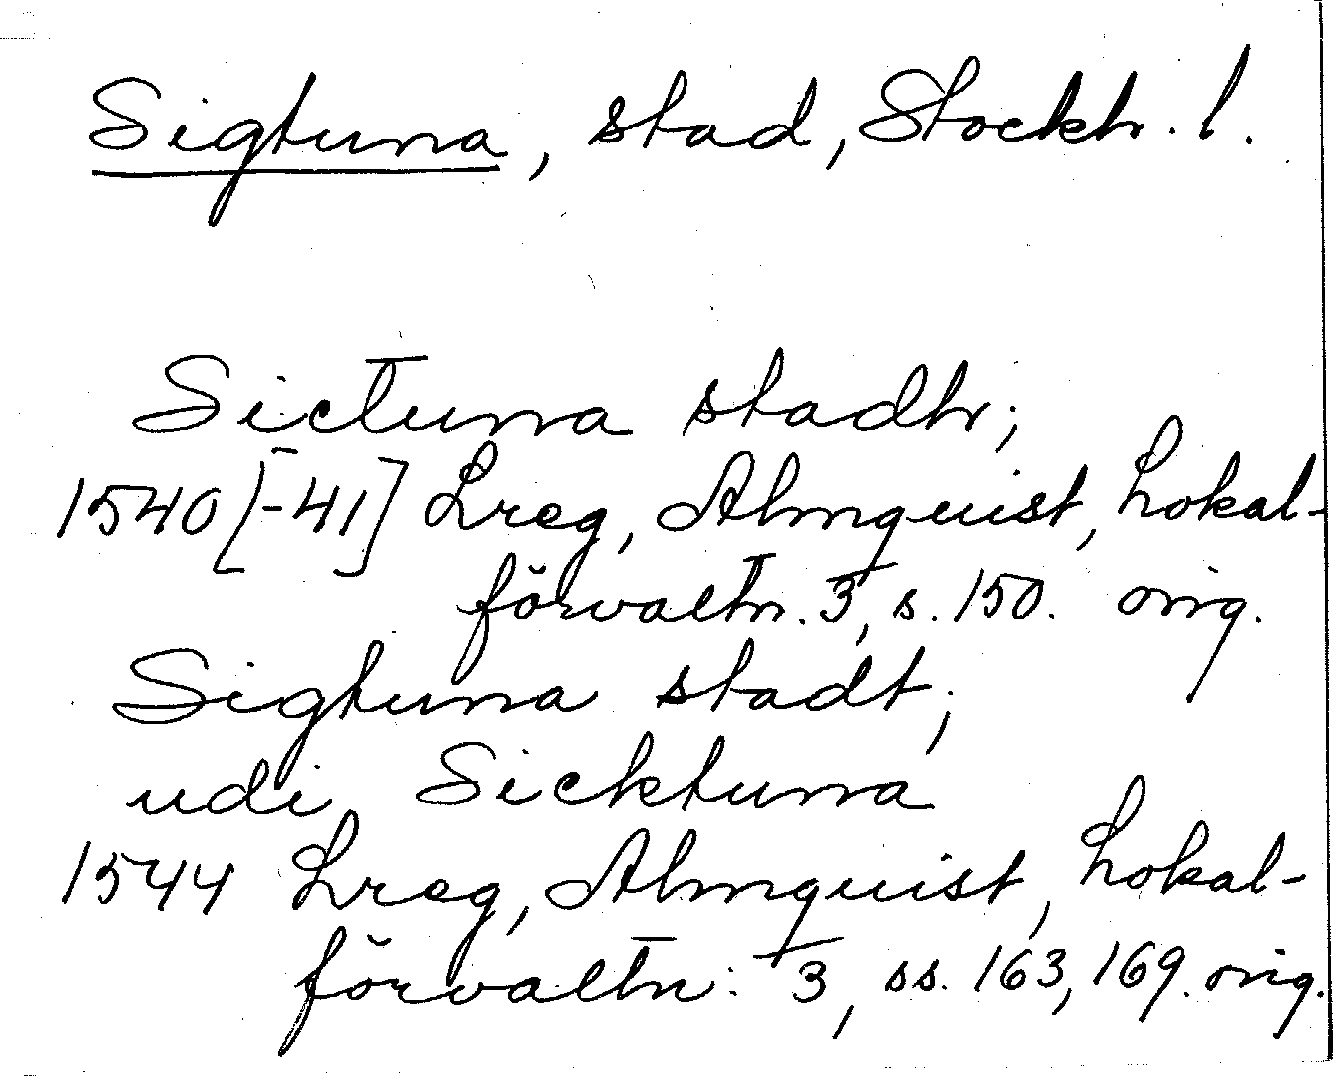 Sigtuna, stad, Stockh. l.
Sictuna stadh;
1540 [-41] Lreg, Almquist, Lokal-
förvaltn. 3, s. 150. orig.
Sigtuna stadt;
udi Sicktuna
1544 Lreg, Almquist, Lokal-
förvaltn. 3, ss. 163, 169. orig.